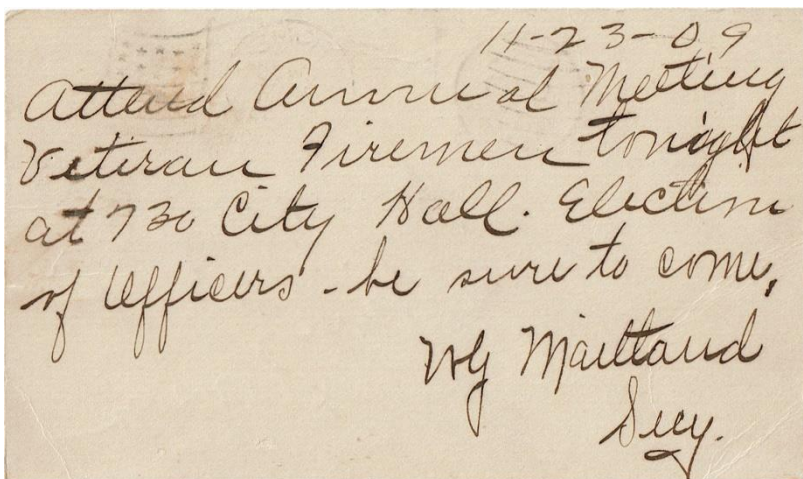 11-23-09
Attend Annual Meeting
Veteran Firemen tonight
at 730 City Hall. Election
of Officers - be sure to come.
WG Maitland
Secy.